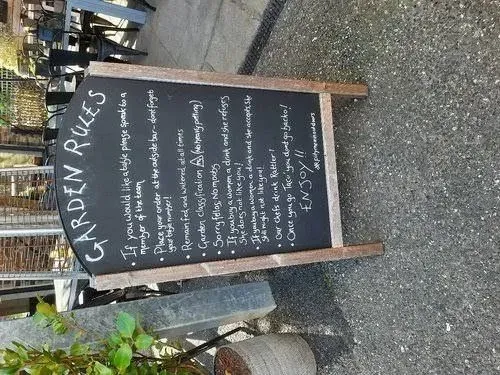 GARDEN RULES
• If you would like a table please speak to a
member of the team
Place your order at the outside bar - dont forget
your table number!
• Remain fed and watered at all times
• Garden classification (no heavy petting)
• Sorry fellas No mooning
• If you buy a women a drink and she refuses
She does not like you!
• If you buy a women a drink and she accepts, she
still might not like you!
• Our Chefs drink Rattler!
• Once you go Taco you dont go backo!
ENJOY!!